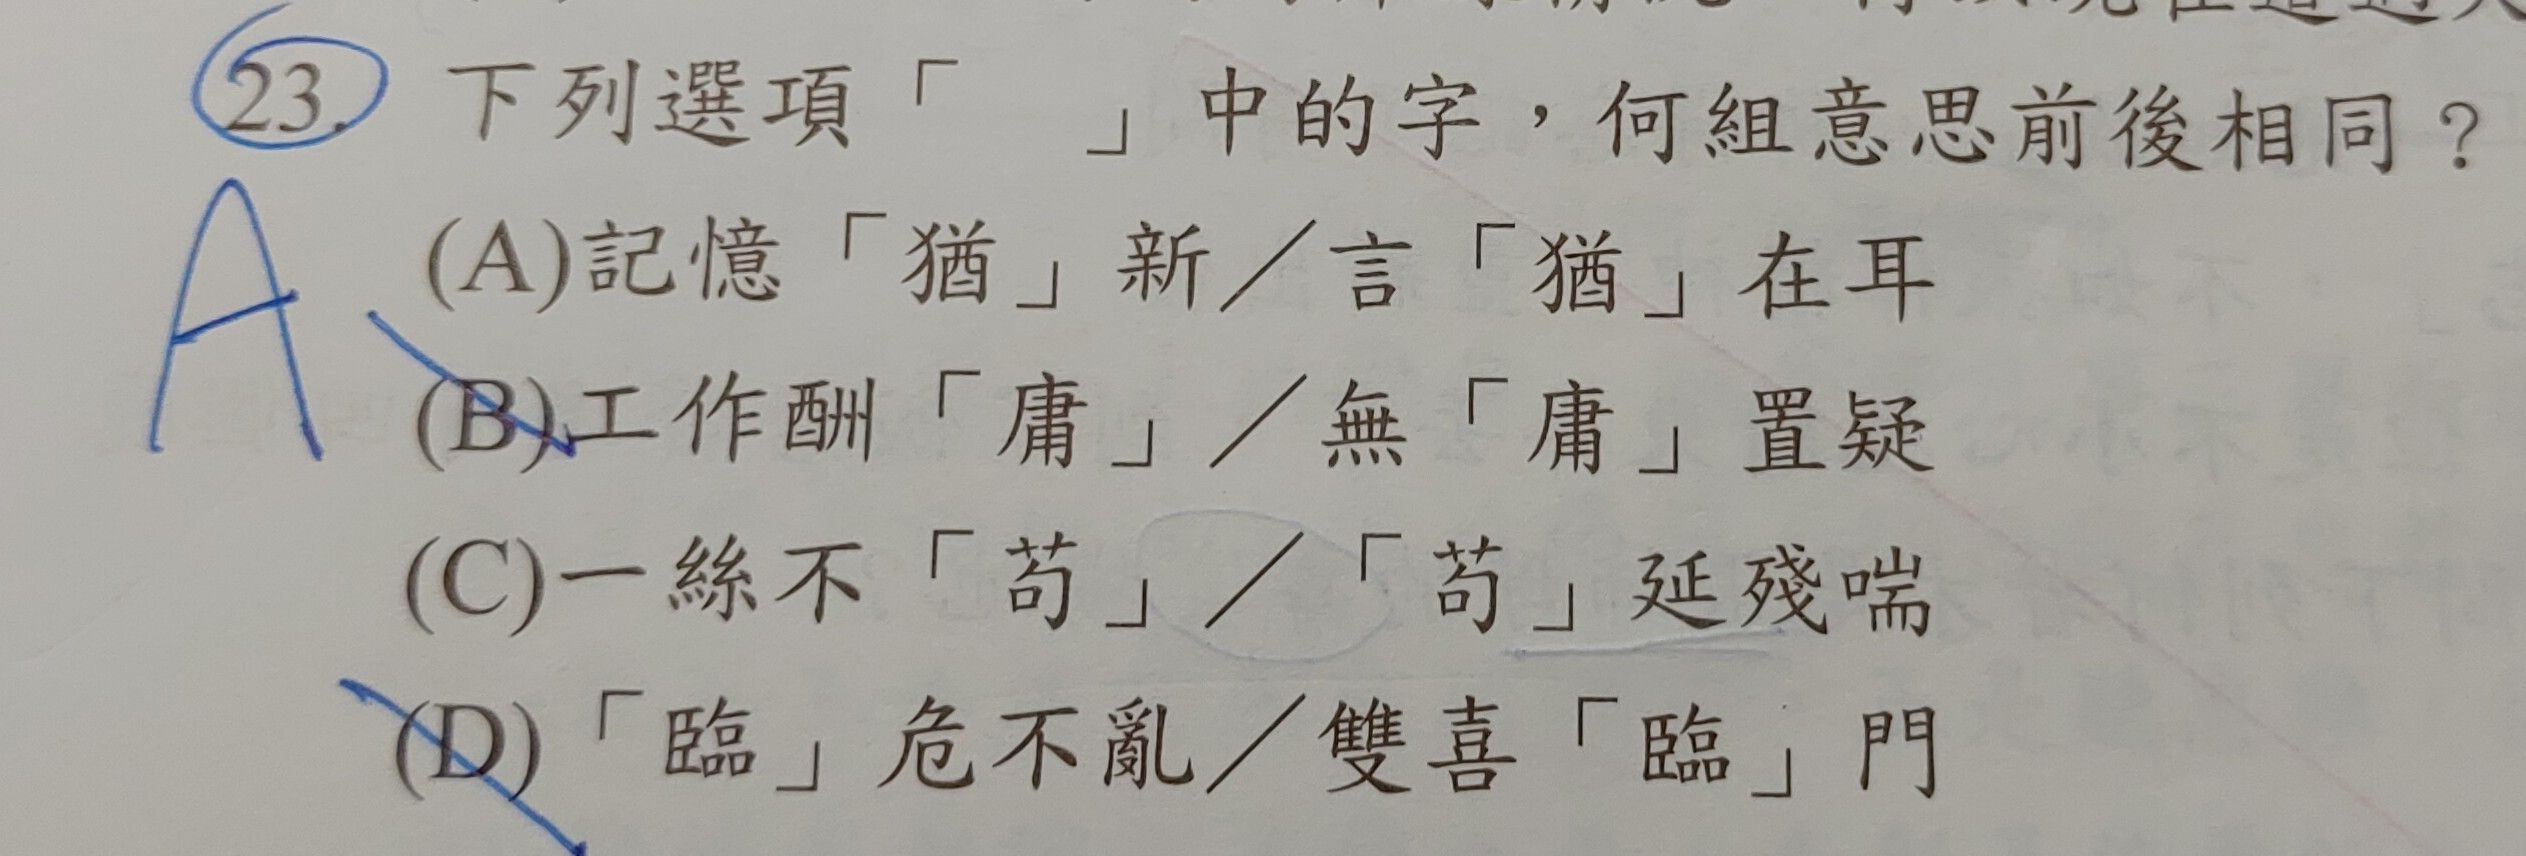 23. 下列選項「　」中的字，何組意思前後相同？
A
(A)記憶「猶」新／言「猶」在耳
(B)工作酬「庸」／無「庸」置疑
(C)一絲不「苟」／「苟」延殘喘
(D)「臨」危不亂／雙喜「臨」門